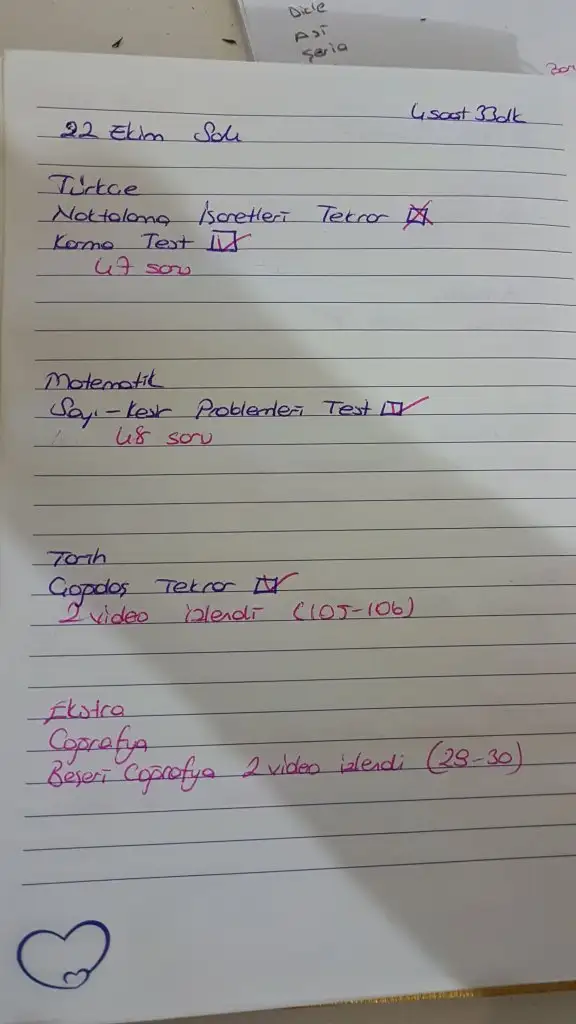 Dicle
Asi
Şeria
4 saat 33dk
22 Ekim Salı
Türkçe
Noktalama İşaretleri Tekrar
Karma Test
47 soru
Matematik
Sayı-Kesir Problemleri Test
48 soru
Tarih
Çağdaş Tekrar
2 video izlendi (105-106)
Ekstra
Coğrafya
Beşeri Coğrafya 2 video izlendi (29-30)